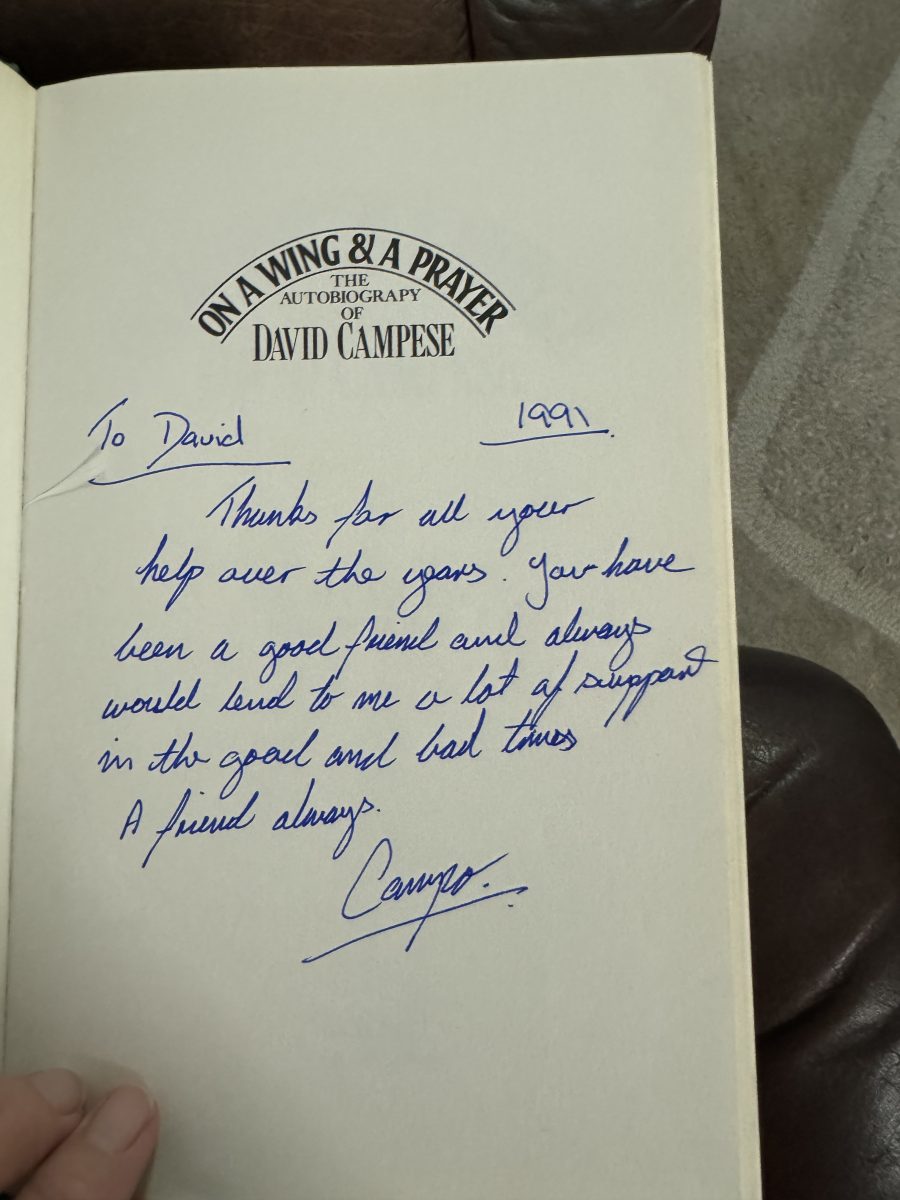 ON A WING & A PRAYER
THE
AUTOBIOGRAPY
OF
DAVID CAMPESE
To David 1991.
Thanks for all your
help over the years. You have
been a good friend and always
would lend to me a lot of support
in the good and bad times
A friend always.
Campo.